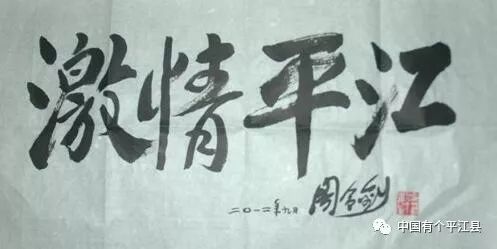 激情平江
二〇一二年九月 周令剑
中国有个平江县